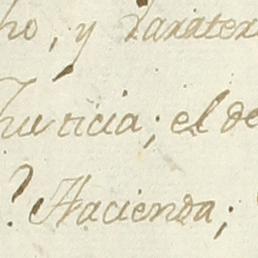 ho, y Caracter
Justicia; el de
? Hacienda;